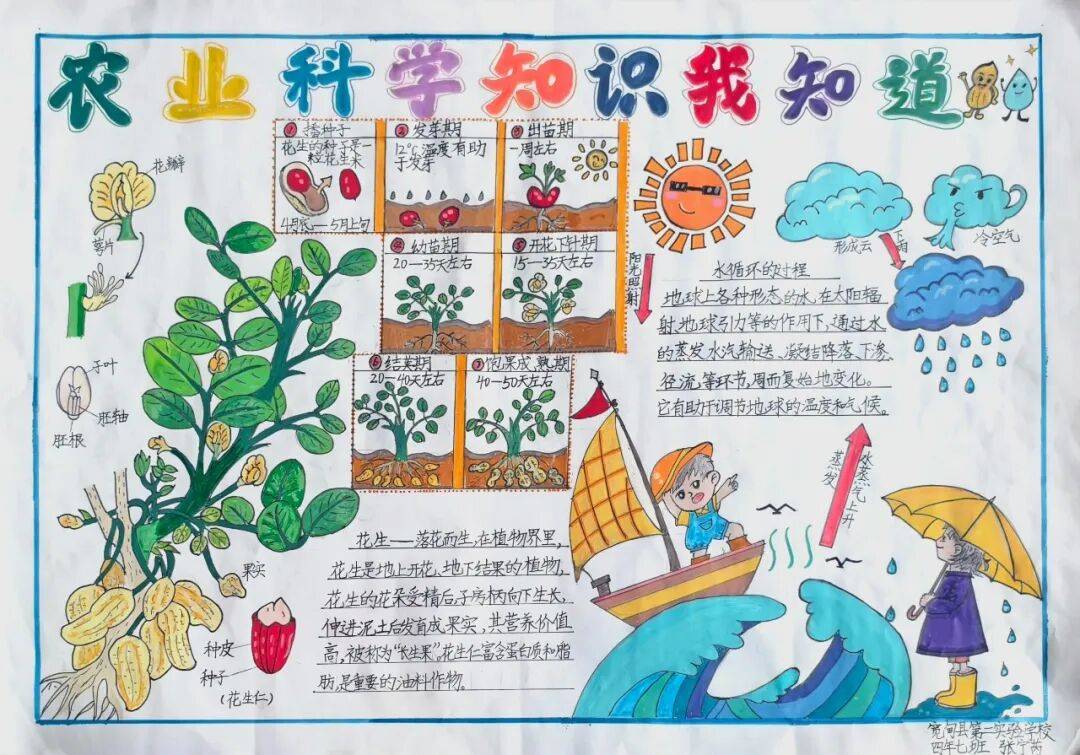 农业科学知识我知道
①播种子
花生的种子是一
粒花生米
4月底—5月上旬
②发芽期
12℃温度有助
于发芽
③出苗期
一周左右
④幼苗期
20—35天左右
⑤开花下针期
15—35天左右
⑥结荚期
20—40天左右
⑦饱果成熟期
40—50天左右
花瓣
萼片
子叶
胚轴
胚根
果实
种皮
种子
(花生仁)
花生——落花而生,在植物界里,
花生是地上开花、地下结果的植物,
花生的花朵受精后,子房柄向下生长,
伸进泥土后发育成果实,其营养价值
高,被称为“长生果”,花生仁富含蛋白质和脂
肪,是重要的油料作物。
阳光照射
形成云
下雨
冷空气
水循环的过程
地球上各种形态的水,在太阳辐
射、地球引力等的作用下,通过水
的蒸发、水汽输送、凝结降落、下渗、
径流等环节,周而复始地变化。
它有助于调节地球的温度和气候。
蒸发
水蒸气上升
宽甸县第一实验学校
四年七班